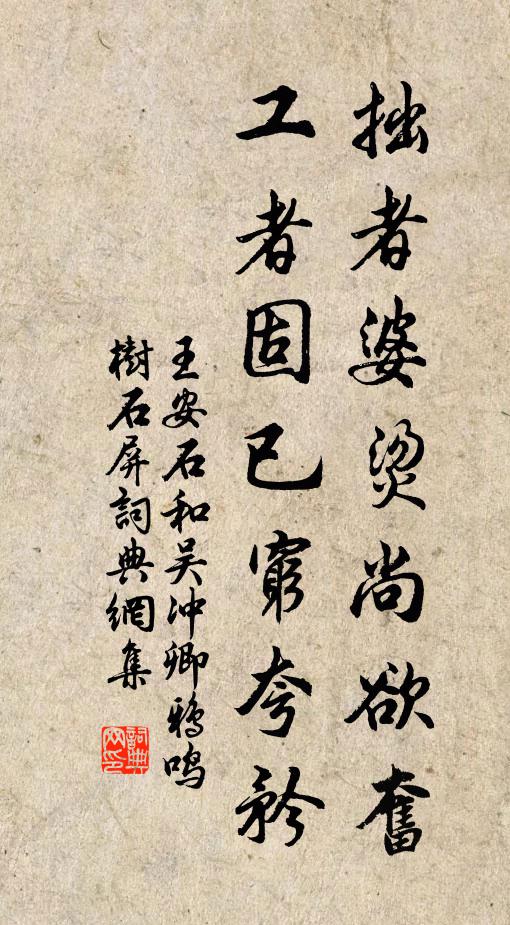 拙者婆燙尚欲奮
工者固已窮夸矜
王安石和吴冲卿鴉鳴
樹石屏詞典網集
詞典
网印